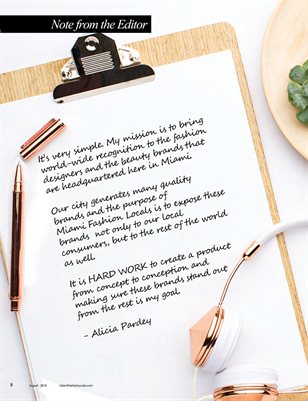 Note from the Editor
It's very simple. My mission is to bring
world-wide recognition to the fashion
designers and the beauty brands that
are headquartered here in Miami.
Our city generates many quality
brands and the purpose of
Miami Fashion Locals is to expose these
brands not only to our local
consumers, but to the rest of the world
as well.
It is HARD WORK to create a product
from concept to conception and
making sure these brands stand out
from the rest is my goal.
- Alicia Pardey
8 August 2019